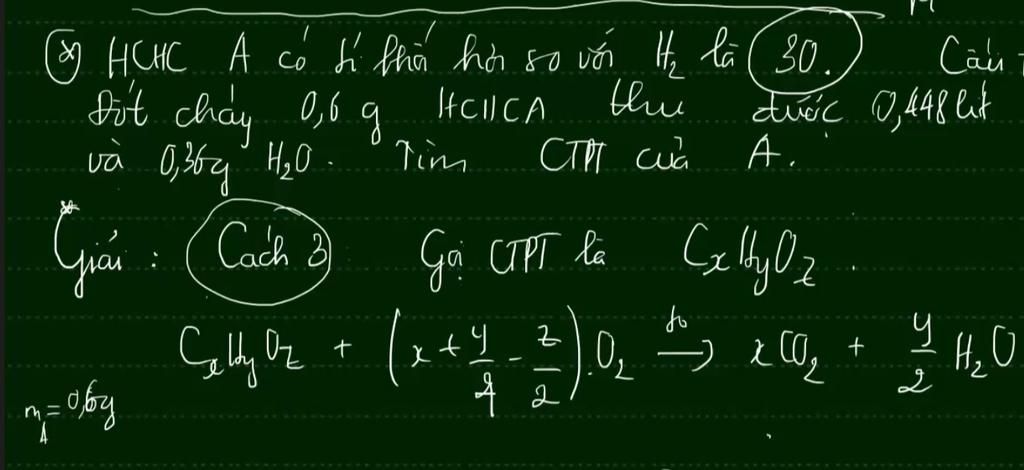 HCHC A có tỉ khối hơi so với H₂ là 30. Cần
Đốt cháy 0,6 g HCHCA thu được 0,448 lít
và 0,36g H₂O. Tìm CTPT của A.
Giải: Cách 3 Gọi CTPT là CₓHᵧO_z.
CₓHᵧO_z + (x + y/4 - z/2).O₂ t⁰→ xCO₂ + y/2 H₂O
m_A = 0,6g